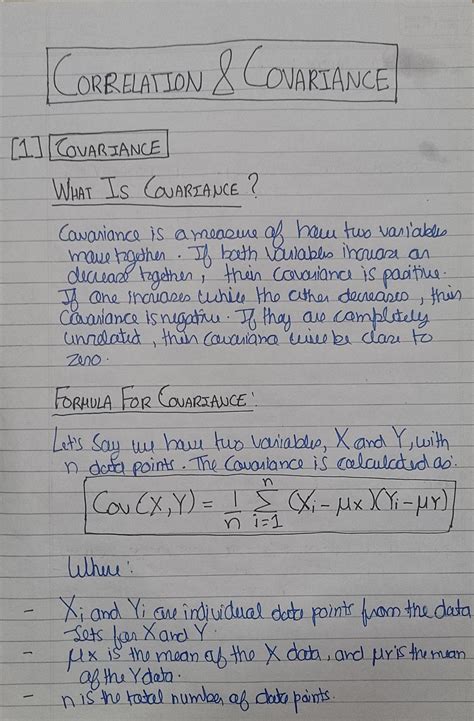 CORRELATION & COVARIANCE
[1] COVARIANCE
WHAT IS COVARIANCE?
Covariance is a measure of how two variables
move together. If both variables increase or
decrease together, their covariance is positive.
If one increases while the other decreases, their
Covariance is negative. If they are completely
unrelated, their covariance will be close to
zero.
FORMULA FOR COVARIANCE:
Let's Say we have two variables, X and Y, with
n data points. The Covariance is calculated as:
Cov(X,Y) = 1/n n∑i=1 (Xi - μx)(Yi - μY)
Where:
- Xi and Yi are individual data points from the data
sets for X and Y.
- μx is the mean of the X data, and μY is the mean
of the Y data.
- n is the total number of data points.